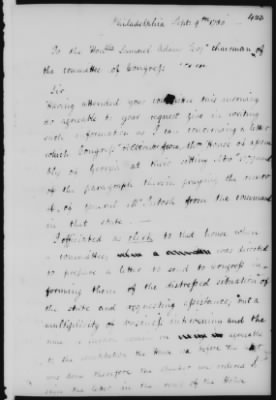 424
Philadelphia Sept: 9th 1780
To the Honble Samuel Adams Esqr chairman of
the committee of Congress
Sir
Having attended your committee this morning
do agreable to your request give in writing
such information as I can concerning a letter
which Congress received from the House of Assem
bly of Georgia at their sitting
of the paragraph therein praying the
of General McIntosh from the command
in that state —
I officiated as clerk to that house when
a committee was directed
to prepare a letter to send to congress in
forming them of the distressed situation of
the state and requesting assistance, but a
multiplicity of business intervening and the
agreable
to the constitution the House
was done therefore the Speaker was ordered to
sign the letter in the name of the House